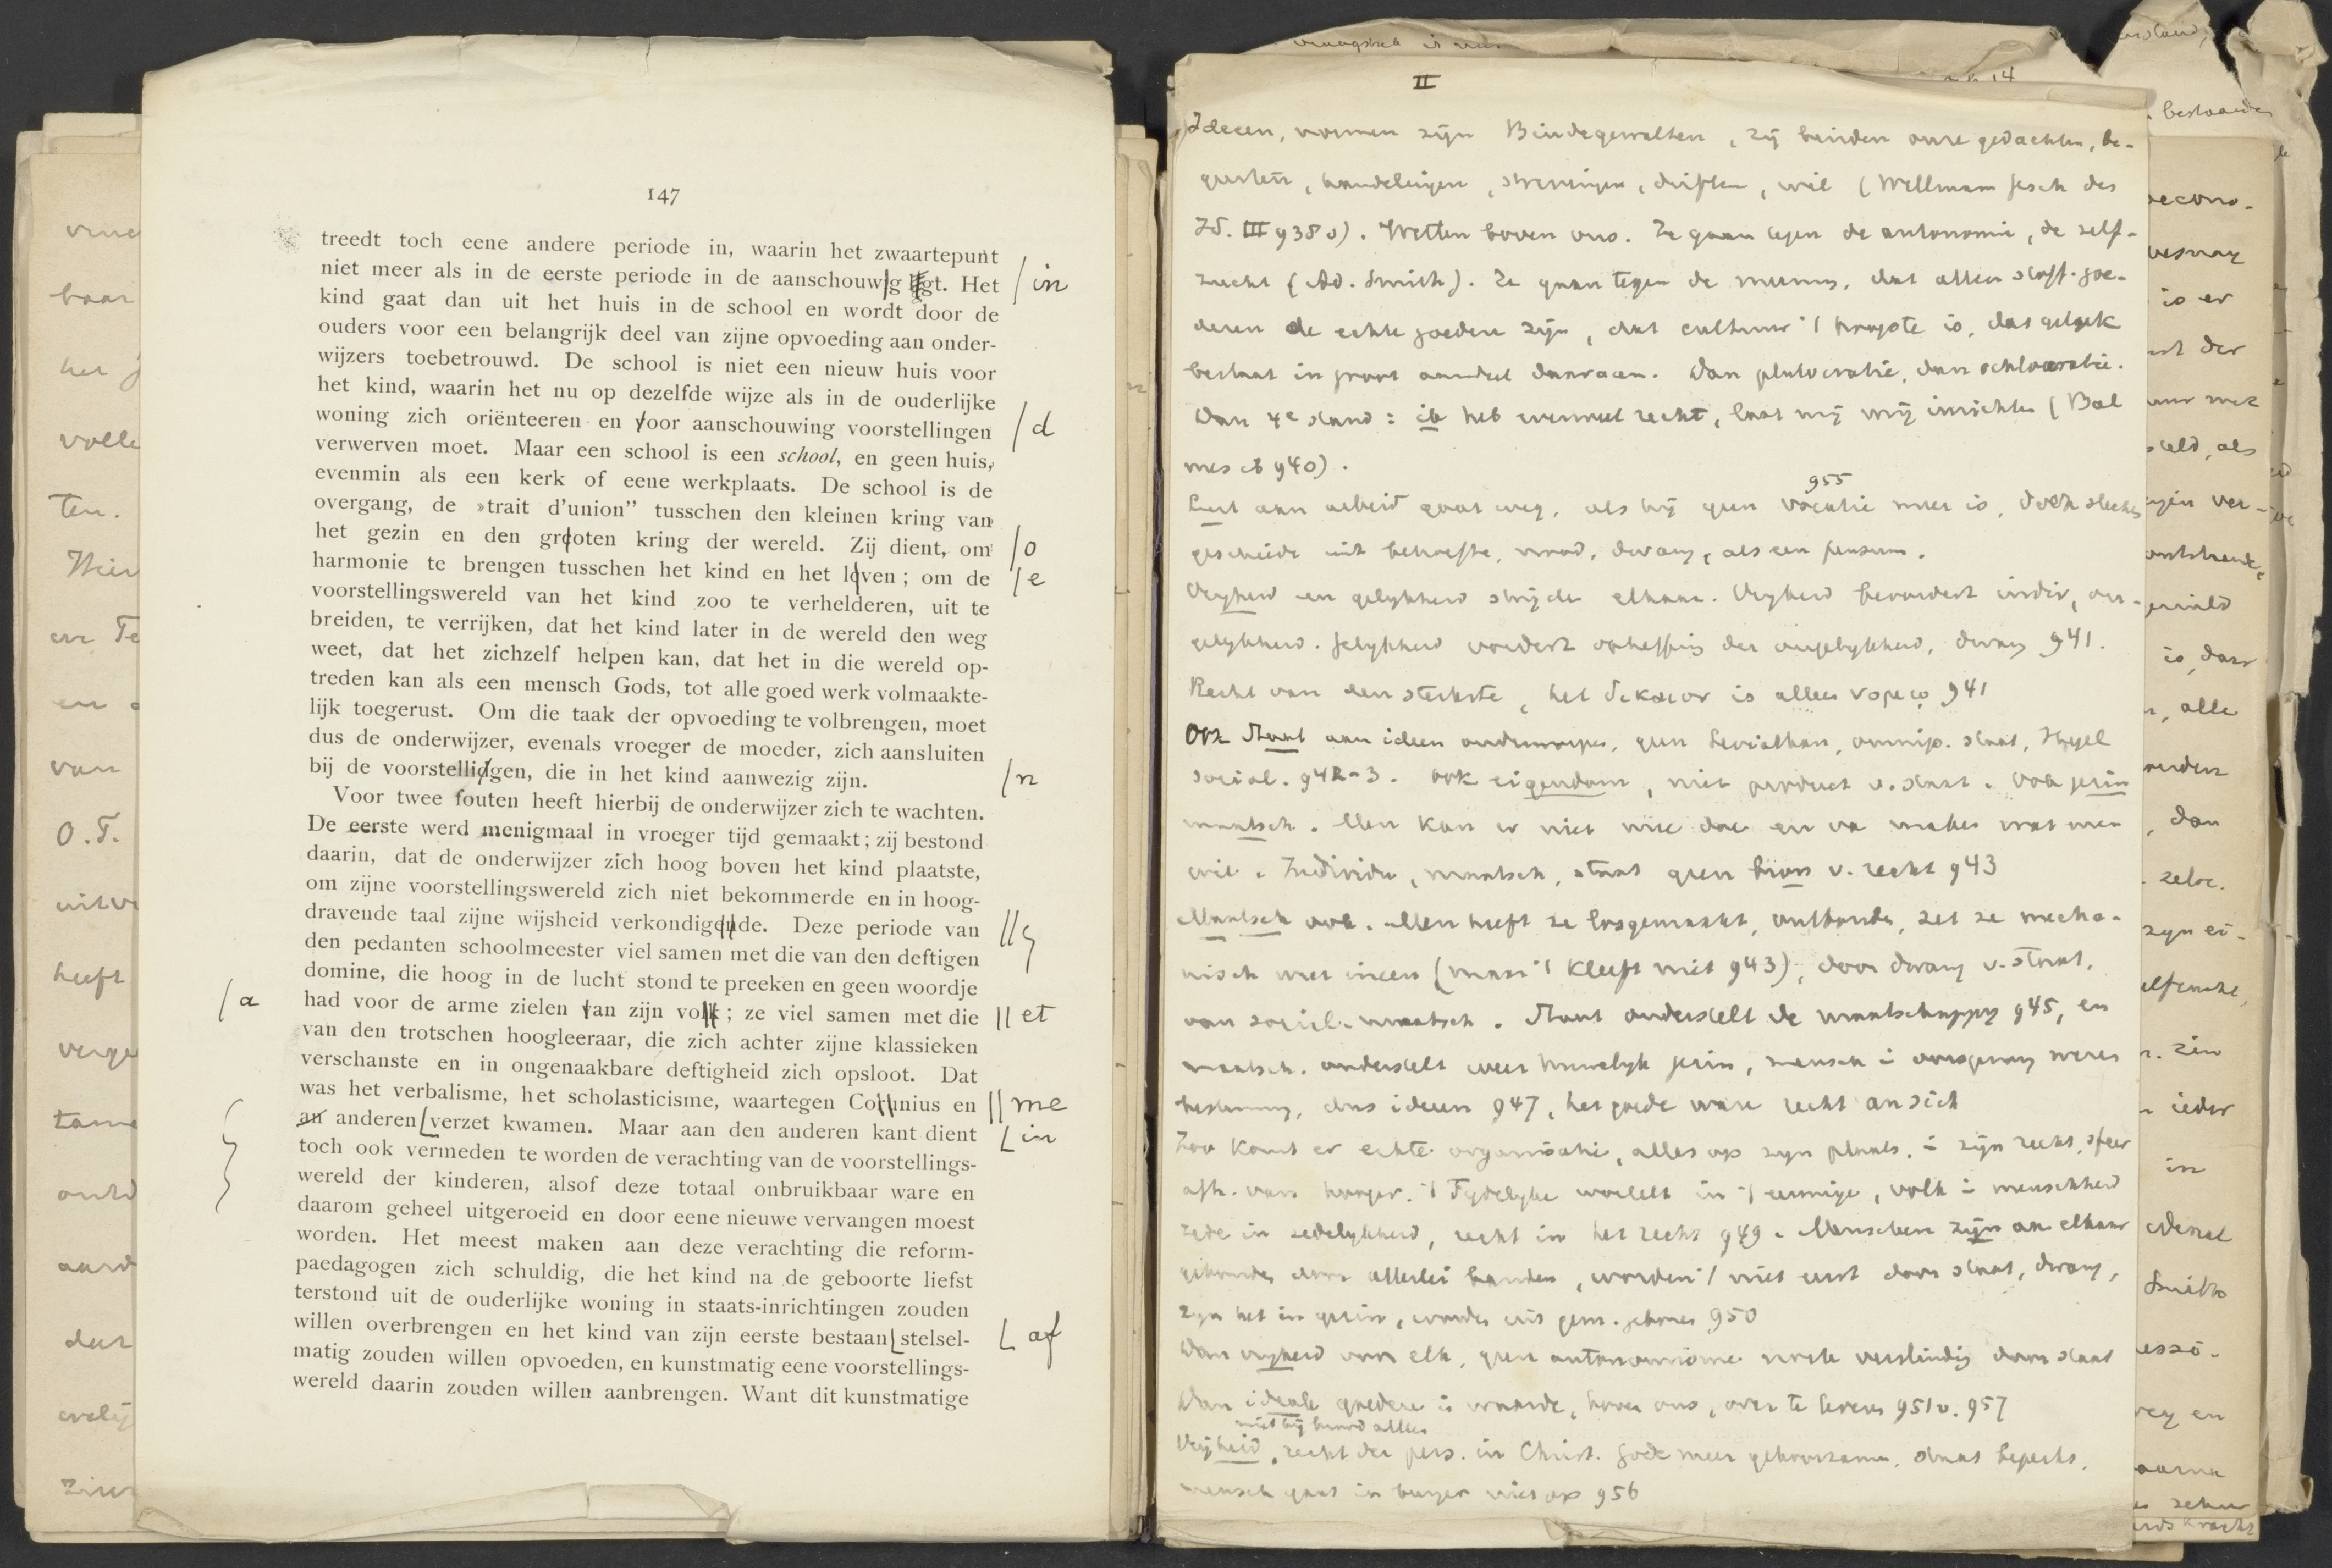 147
treedt toch eene andere periode in, waarin het zwaartepunt
niet meer als in de eerste periode in de aanschouwg ligt. Het /in
kind gaat dan uit het huis in de school en wordt door de
ouders voor een belangrijk deel van zijne opvoeding aan onder-
wijzers toebetrouwd. De school is niet een nieuw huis voor
het kind, waarin het nu op dezelfde wijze als in de ouderlijke
woning zich oriënteeren en voor aanschouwing voorstellingen /d
verwerven moet. Maar een school is een school, en geen huis,
evenmin als een kerk of eene werkplaats. De school is de
overgang, de »trait d'union" tusschen den kleinen kring van
het gezin en den grooten kring der wereld. Zij dient, om /o
harmonie te brengen tusschen het kind en het loven; om de /e
voorstellingswereld van het kind zoo te verhelderen, uit te
breiden, te verrijken, dat het kind later in de wereld den weg
weet, dat het zichzelf helpen kan, dat het in die wereld op-
treden kan als een mensch Gods, tot alle goed werk volmaakte-
lijk toegerust. Om die taak der opvoeding te volbrengen, moet
dus de onderwijzer, evenals vroeger de moeder, zich aansluiten
bij de voorstellidgen, die in het kind aanwezig zijn. /n
Voor twee fouten heeft hierbij de onderwijzer zich te wachten.
De eerste werd menigmaal in vroeger tijd gemaakt; zij bestond
daarin, dat de onderwijzer zich hoog boven het kind plaatste,
om zijne voorstellingswereld zich niet bekommerde en in hoog-
dravende taal zijne wijsheid verkondigende. Deze periode van
den pedanten schoolmeester viel samen met die van den deftigen
domine, die hoog in de lucht stond te preeken en geen woordje
/a had voor de arme zielen van zijn volk; ze viel samen met die || et
van den trotschen hoogleeraar, die zich achter zijne klassieken
verschanste en in ongenaakbare deftigheid zich opsloot. Dat
was het verbalisme, het scholasticisme, waartegen Co nius en || me
an anderen verzet kwamen. Maar aan den anderen kant dient in
toch ook vermeden te worden de verachting van de voorstellings-
wereld der kinderen, alsof deze totaal onbruikbaar ware en
daarom geheel uitgeroeid en door eene nieuwe vervangen moest
worden. Het meest maken aan deze verachting die reform-
paedagogen zich schuldig, die het kind na de geboorte liefst
terstond uit de ouderlijke woning in staats-inrichtingen zouden
willen overbrengen en het kind van zijn eerste bestaan stelsel- af
matig zouden willen opvoeden, en kunstmatig eene voorstellings-
wereld daarin zouden willen aanbrengen. Want dit kunstmatige
II
Ideeen, normen zijn Bindegewalten, zij binden onze gedachten, be-
geerten, handelingen, strevingen, driften, wil (Willmann Gesch des
Id. III 938 v). Wetten boven ons. Ze gaan tegen de autonomie, de zelf-
zucht (Ad. Smith). Ze gaan tegen de meening, dat alleen stoff. goe-
deren de echte goederen zijn, dat cultuur 't hoogste is, dat geluk
bestaat in groot aandeel daaraan. Dan plutocratie, dan ochlocratie.
Dan 4e stand: ik heb evenveel recht, laat mij mij inrichten (Bol
mes ib 940).
955
Lust aan arbeid gaat weg, als hij geen vocatie meer is, doch slechts
geschiedt uit behoefte, nood, dwang, als een pensum.
Vrijheid en gelijkheid strijden elkaar. Vrijheid bevordert indiv, on-
gelijkheid. Gelijkheid vordert opheffing der ongelijkheid, dwang 941.
Recht van den sterkste, het δικαιον is alleen νομῳ 941
Ook Staat aan ideen onderworpen, geen Leviathan, omnip. staat, Hegel
social. 942-3. Ook eigendom, niet product v. staat. Ook gezin
maatsch. Men kan er niet mee doen en van maken wat men
wil. Individu, maatsch, staat geen bron v. recht 943
Maatsch ook. Men heeft ze losgemaakt, ontbonden, zet ze mecha-
nisch weer ineen (maar 't kleeft niet 943), door dwang v. staat,
van social. maatsch. Staat onderstelt de maatschappij 945, en
maatsch. onderstelt weer huwelijk gezin, mensch i oorsprong wezen
bestemming, dus ideeen 947, het goede ware recht an sich
Zoo komt er echte organisatie, alles op zijn plaats, i zijn recht, sfeer
afh. van hooger. 't Tijdelijke wortelt in 't eeuwige, volk i menschheid
zede in zedelijkheid, recht in het recht 949. Menschen zijn aan elkaar
gebonden door allerlei banden, worden 't niet eerst door staat, dwang,
zijn het in gezin, worden uit gem. geboren 950
Dan vrijheid voor elk, geen autonomisme
Dan ideale goederen i waarde, boven ons, over te leveren 951 v. 957
Vrijheid, recht der pers. in Christ. Gode meer gehoorzamen, staat beperkt,
mensch gaat in burger niet op 956